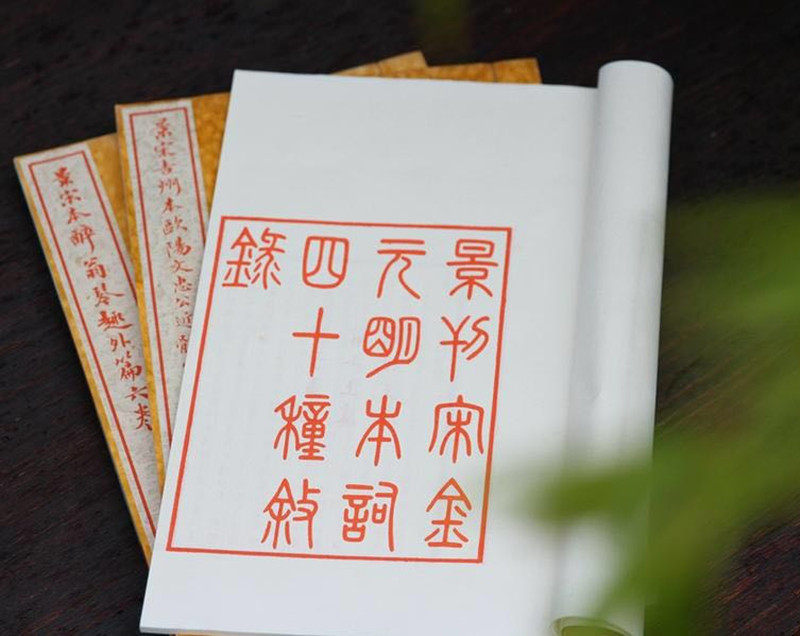 景刊宋金
元明本詞
四十種敘
錄
景宋吉州本歐陽文忠公近
景宋本醉翁琴趣外篇六卷